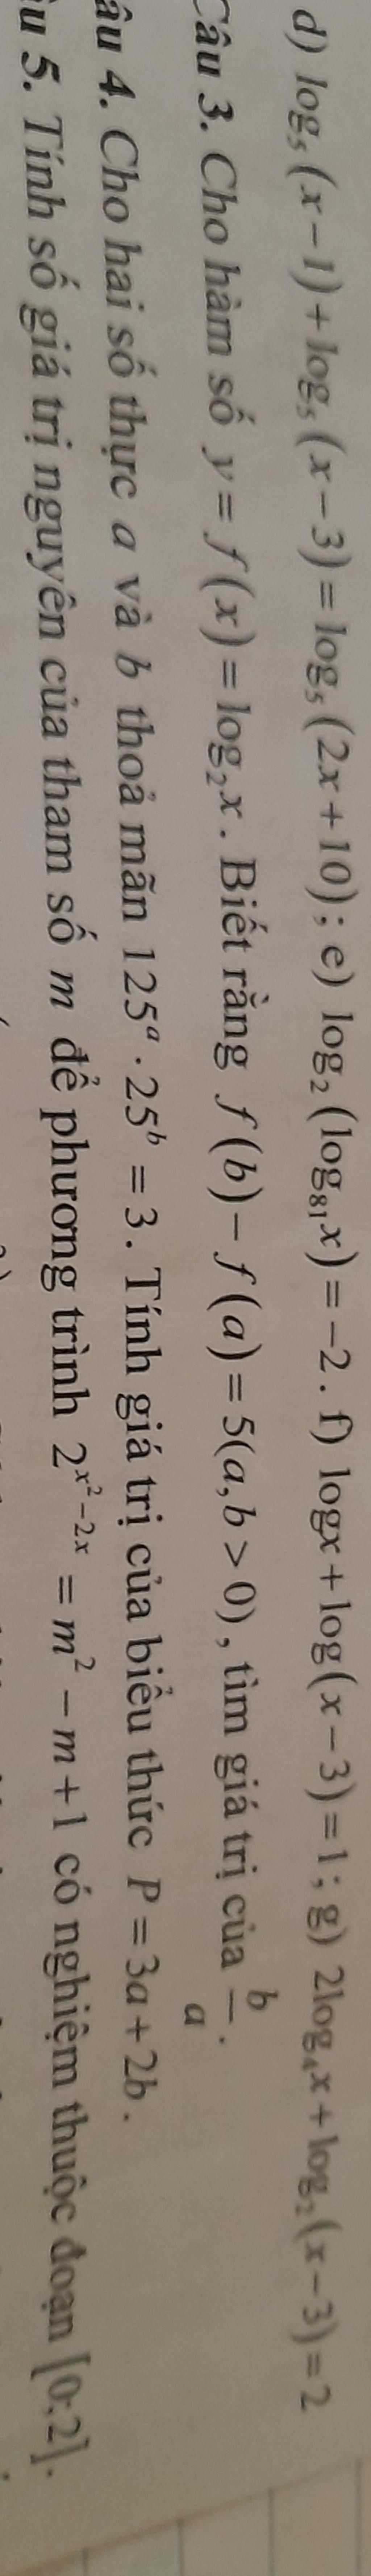 d) log₅(x−1)+log₅(x−3)=log₅(2x+10); e) log₂(log₈₁x)=−2. f) logx+log(x−3)=1; g) 2log₄x+log₂(x−3)=2
Câu 3. Cho hàm số y=f(x)=log₂x. Biết rằng f(b)−f(a)=5(a,b>0), tìm giá trị của b/a.
âu 4. Cho hai số thực a và b thoả mãn 125ᵃ·25ᵇ=3. Tính giá trị của biểu thức P=3a+2b.
u 5. Tính số giá trị nguyên của tham số m để phương trình 2^(x²−2x)=m²−m+1 có nghiệm thuộc đoạn [0;2].